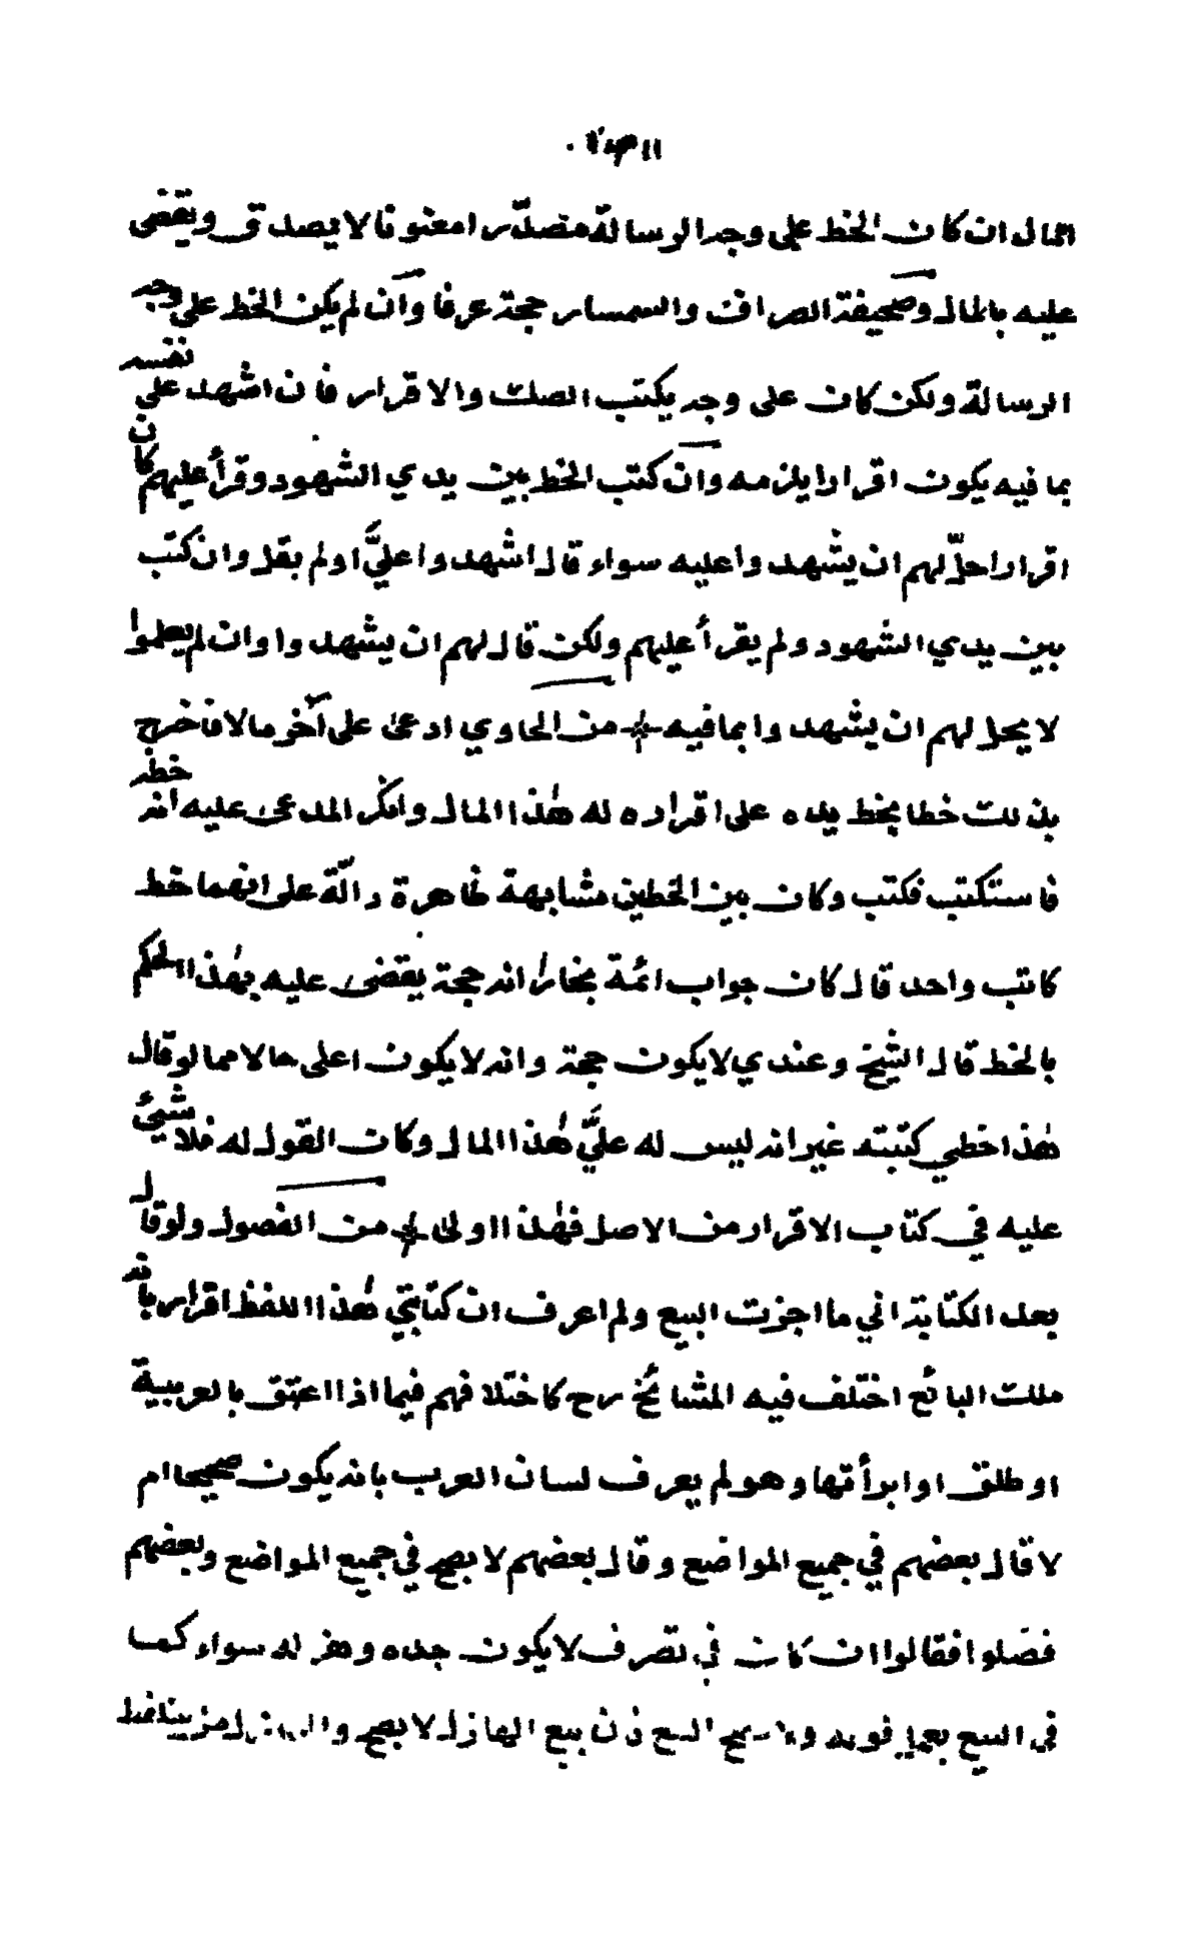 المال ان كان الخط على وجه الرسالة مصدّرا معنونا لا يصدق ويقضى
عليه بالمال وصحيفة الصراف والسمسار حجة عرفا وان لم يكن الخط على وجه
الرسالة ولكن كان على وجه يكتب الصك والاقرار فان اشهد على نفسه
بما فيه يكون اقرارا يلزمه وان كتب الخط بين يدي الشهود وقرأ عليهم كان
اقرارا حلّ لهم ان يشهدوا عليه سواء قال اشهدوا عليَّ او لم يقل وان كتب
بين يدي الشهود ولم يقرأ عليهم ولكن قال لهم ان يشهدوا وان لم يعلموا
لا يحل لهم ان يشهدوا بما فيه من الحاوي ادعى على آخر مالا فاخرج
بذلك خطا بخط يده على اقراره له هٰذا المال وانكر المدعى عليه انه خطه
فاستكتب فكتب وكان بين الخطين مشابهة ظاهرة دالّة على انهما خط
كاتب واحد قال كان جواب ائمة بخارا انه حجة يقضى عليه بهٰذا الحكم
بالخط قال الشيخ وعندي لا يكون حجة وانه لا يكون اعلى حالا مما لو قال
هٰذا خطي كتبته غير انه ليس له عليَّ هٰذا المال وكان القول له فلا شيئ
عليه في كتاب الاقرار من الاصل فهٰذا اولى من الفصول ولو قال
بعد الكتابة اني ما اجزت البيع ولم اعرف ان كتابتي هٰذا اللفظ اقرار بانه
ملك البائع اختلف فيه المشائخ رح كاختلافهم فيما اذا اعتق بالعربية
او طلق او ابرأتها وهو لم يعرف لسان العرب بانه يكون صحيحا ام
لا قال بعضهم في جميع المواضع وقال بعضهم لا يصح في جميع المواضع وبعضهم
فصلوا فقالوا ان كان في تصرف لا يكون جده وهزله سواء كما
في البيع يصح البيع بيع الهازل لا يصح